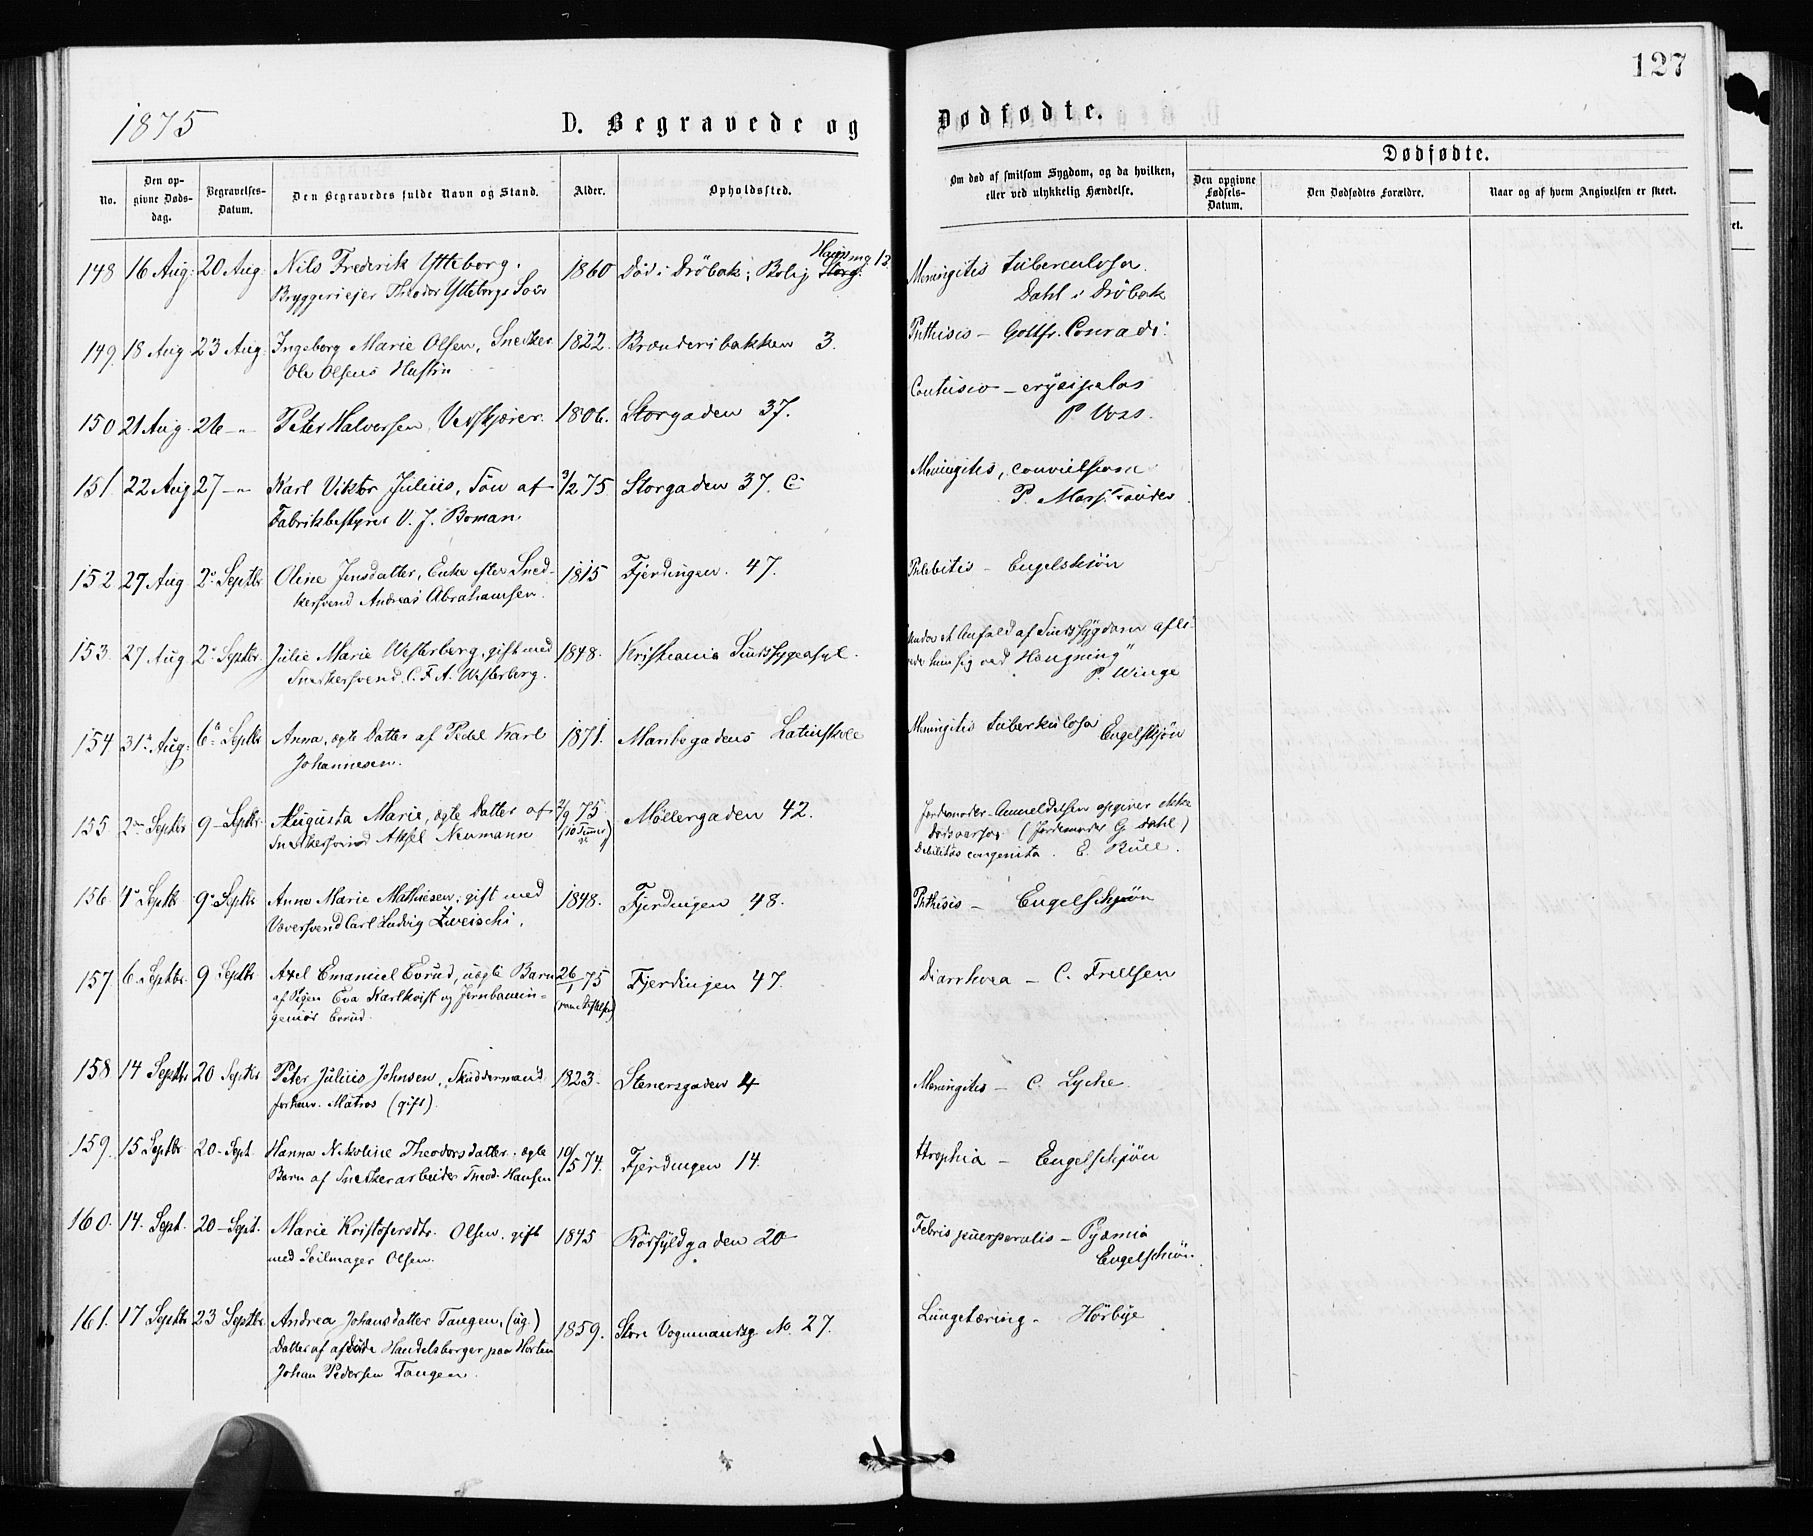 127
1875
D. Begravede og Dødfødte.
Dødfødte.
No.
Den opgivne Dødsdag.
Begravelses-Datum.
Den Begravedes fulde Navn og Stand.
Alder.
Opholdssted.
Om død af smitsom Sygdom, og da hvilken, eller ved ulykkelig Hændelse.
Den opgivne Fødsels-Datum.
Den Dødfødtes Forældre.
Naar og af hvem Angivelsen er skeet.
148 16 Aug: 20 Aug: Nils Frederik Ytteborg. 1860 Død i Dröbak; Bolig Storg. Meningitis tuberculosa
Bryggeriejer Theodor Ytteborgs Søn Dahl i Dröbak
149. 18 Aug 23 Aug: Ingeborg Marie Olsen, Snedker 1822. Brænderibakken 3. Phthisis – Gottfr. Conradi.
Ole Olsens Hustru
150 21 Aug. 26 –"– Peter Halvorsen, Veiskjærer. 1806. Storgaden 37. Contusio – erysipelas
P Voss.
151. 22 Aug 27 –"– Karl Viktor Julius, Søn af 3/2 75 Storgaden 37. C Meningitis,
Fabrikbestyrer V. J. Boman P.
152 27 Aug 2 Septbr Oline Jensdatter, Enke efter Sned- 1815 Fjerdingen. 47. Phlebitis – Engelskjön
kersvend Andreas Abrahamsen.
153. 27 Aug 2 Septbr. Julie Marie Westerberg, gift med 1848. Kristiania Sindssygeasyl. Under et Anfald af Sindssygdom afli-
Snedkersvend C. F. A. Westerberg. vede hun sig ved Hængning"
P. Winge
154 31 Aug: 6 Septbr Anna, ægte Datter af Pedel Karl 1871. Møllergadens Latinskole Meningitis tuberkulosa Engelskjön
Johannesen.
155 2 Septbr 9 – Septbr. Augusta Marie, ægte Datter af 2/9 75 Möllergaden 42. Jordemoder-Anmeldelsen opgiver ikke
Snedkersvend Aksel Neumann (10 Timer) Dödsaarsag (Jordemoder G Dahl)
Debilitas congenita. E. Bull.
156. 4 Septbr 9 Septbr Anne Marie Mathiesen, gift med 1848. Fjerdingen 48. Phthisis – Engelskjön
Væversvend Carl Ludvig Zweischi.
157. 6 Septbr. 9 Septbr Axel Emanuel Evrud, uægte Barn 26/1 75 Fjerdingen 47. Diarrhoea – C. Frellsen
af Pigen Eva Karlkvist og Jernbanein-
geniör Evrud.
158 14 Septbr 20 Septbr Peter Julius Johnsen, Skuddermand 1823. Stenersgaden 4 Meningitis – C. Lyche.
forhenv. Matros (gift).
159. 15 Septbr 20 – Sept. Hanna Nikoline Theodorsdatter. ægte 10/5 74. Fjerdingen 14. Atrophia – Engelschjön
Barn af Snedkerarbeider Theod. Hansen
160. 14. Sept. 20 – Sept. Marie Kristofersdtr. Olsen, gift 1845 Rörfyldgaden 20 Febris puerperalis – Pyæmia
med Seilmager Olsen. Engelschiön
161. 17 Septbr 23 Septbr. Andrea Johansdatter Tangen, (ug.) 1859. Store Vognmandsg No. 27. Lungetæring – Hörbye
Datter af afdöde Handelsborger paa Horten
Johan Pedersen Tangen.